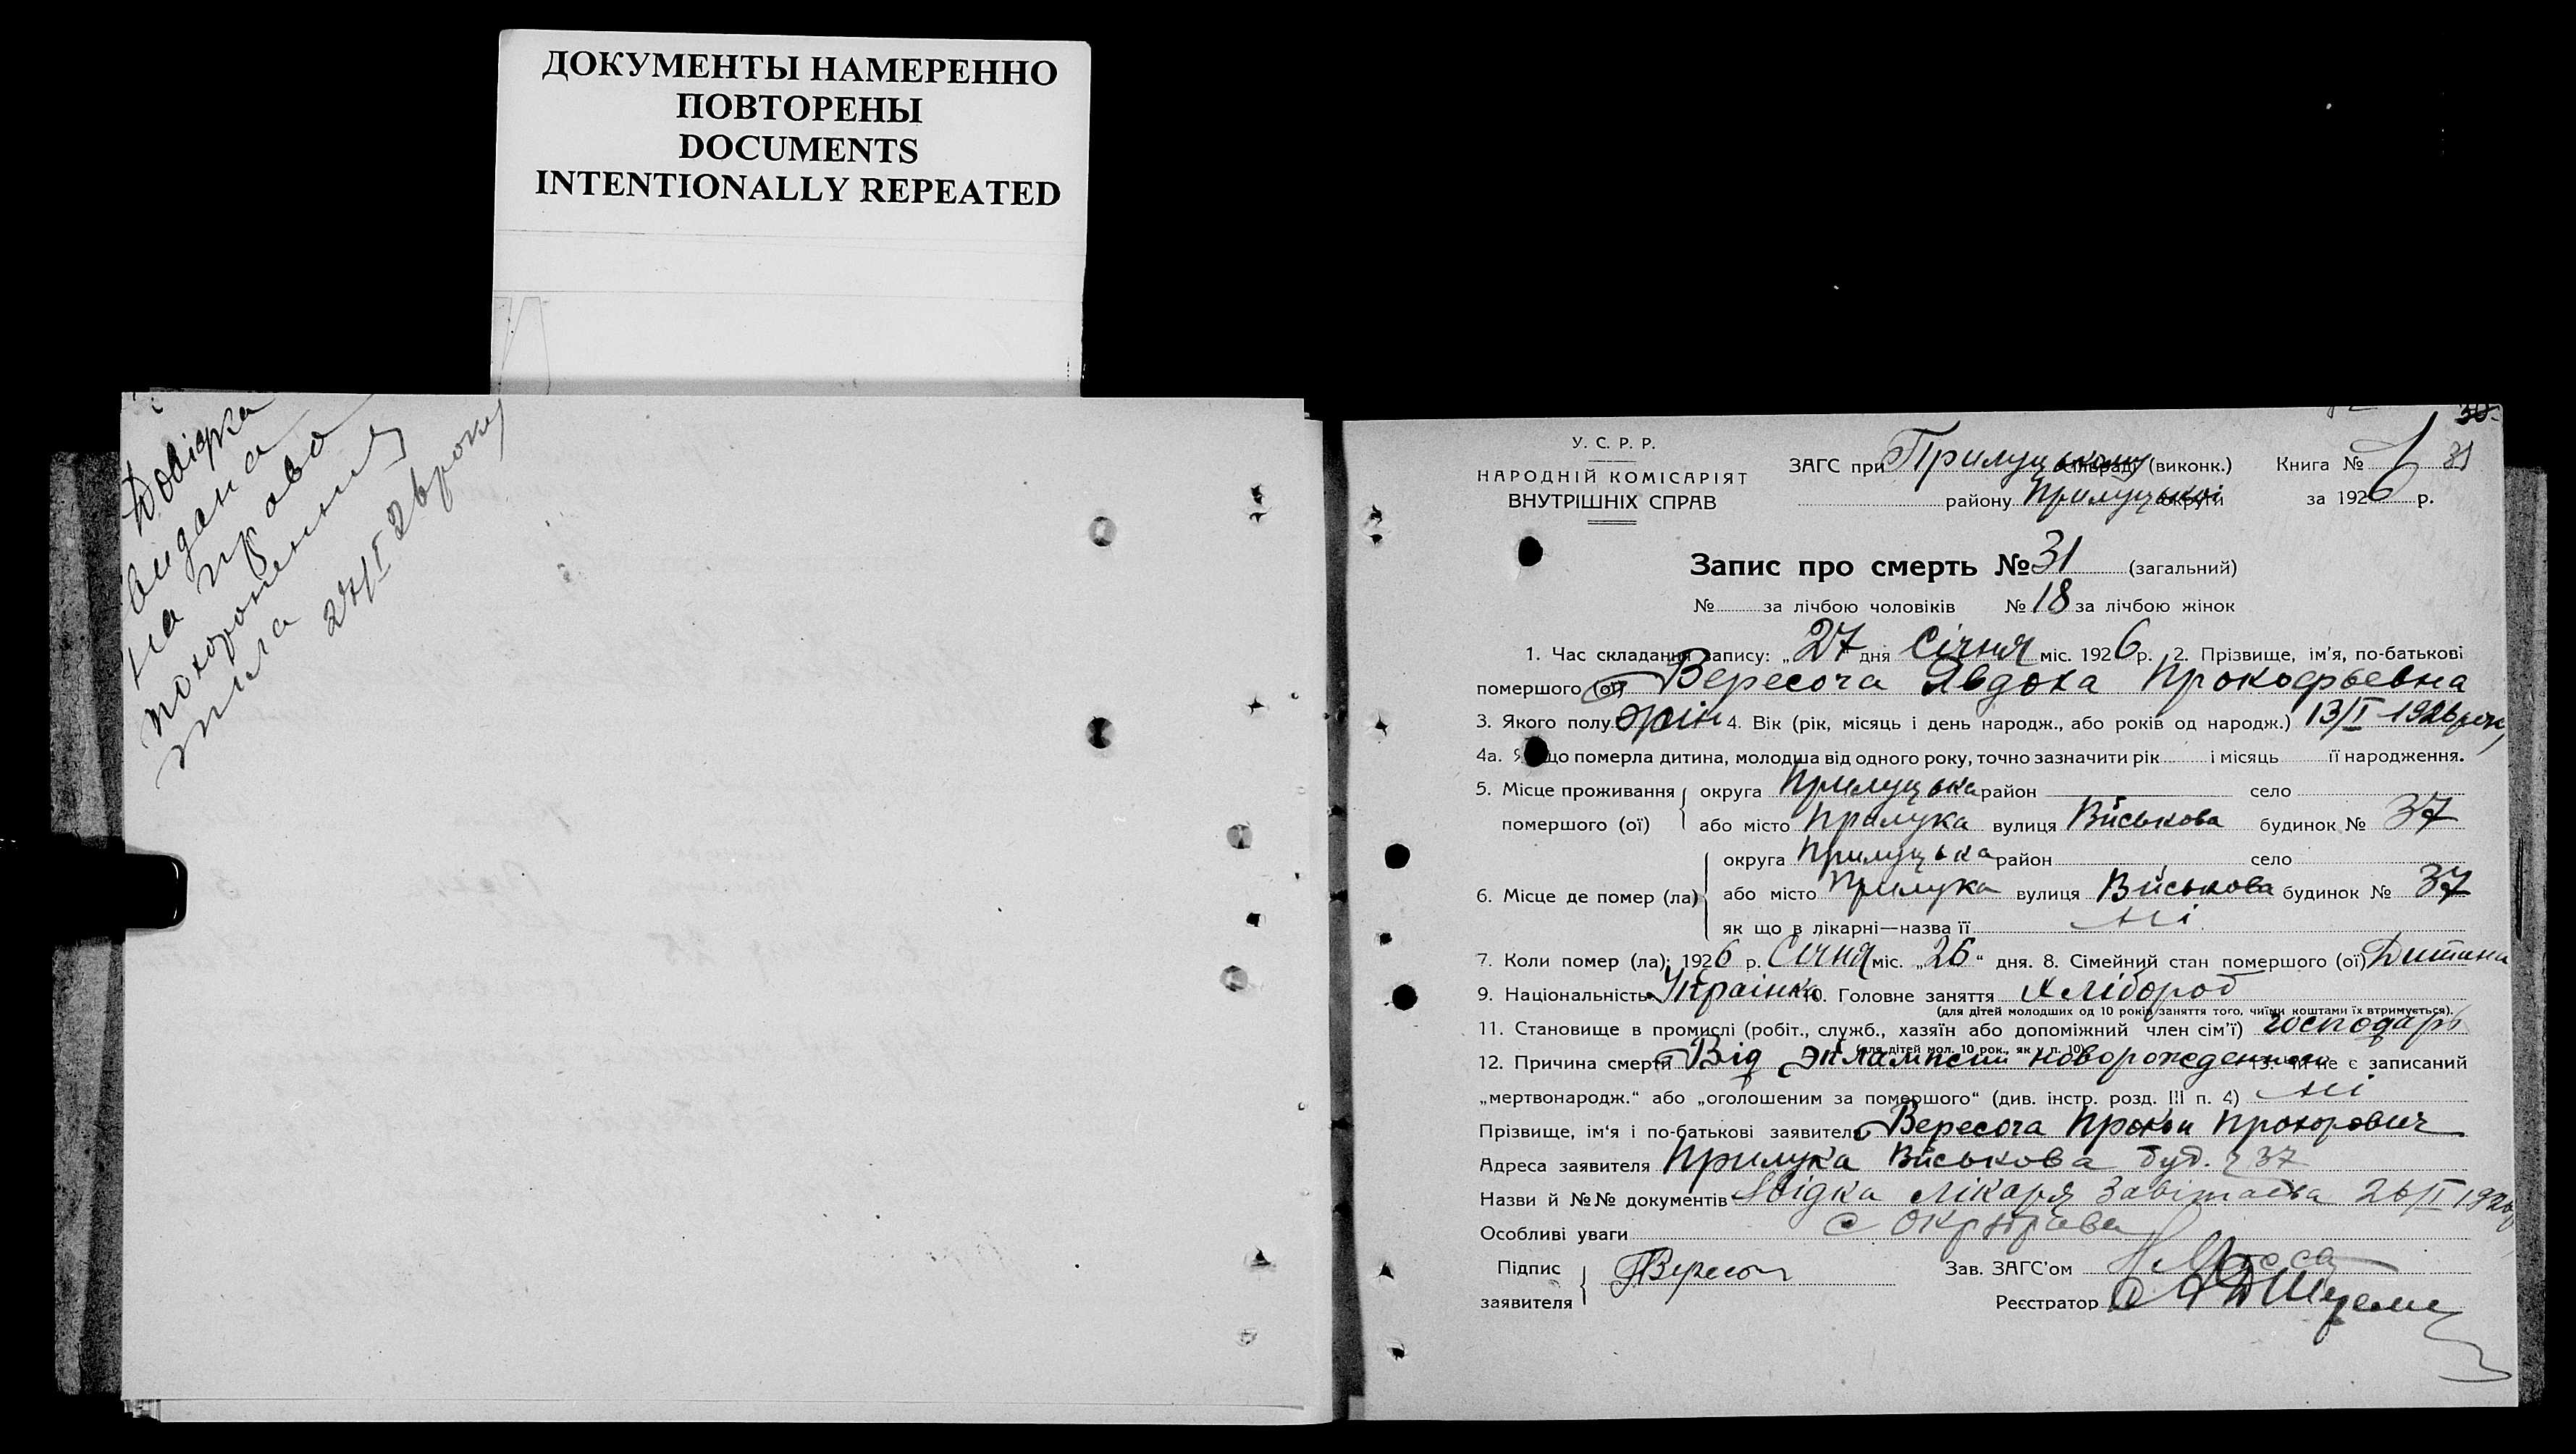 ДОКУМЕНТЫ НАМЕРЕННО
ПОВТОРЕНЫ
DOCUMENTS
INTENTIONALLY REPEATED
Довідка
видана
на право
похоронення
тіла 27/I 26 року
У. С. Р. Р.
НАРОДНІЙ КОМІСАРІЯТ
ВНУТРІШНІХ СПРАВ
ЗАГС при Прилуцькому (виконк.) Книга №
району Прилуцької округи за 1926 р.
Запис про смерть № 31 (загальний)
№ за лічбою чоловіків № 18 за лічбою жінок
1. Час складання запису: „27" дня Січня міс. 1926 р. 2. Прізвище, ім'я, по-батькові
помершого (ої) Вересоча Явдоха Прокофьевна
3. Якого полу Жін 4. Вік (рік, місяць і день народж., або років од народж.) 13/I 1926 рок
4а. Якщо померла дитина, молодша від одного року, точно зазначити рік і місяць її народження.
5. Місце проживання округа Прилуцька район село
помершого (ої) або місто Прилука вулиця Військова будинок № 37
округа Прилуцька район село
6. Місце де помер (ла) або місто Прилука вулиця Військова будинок № 37
як що в лікарні—назва її ні
7. Коли помер (ла): 1926 р. Січня міс. „26" дня. 8. Сімейний стан помершого (ої) Дитина
9. Національність Українка 10. Головне заняття Хлібороб
(для дітей молодших од 10 років заняття того, чиїми коштами їх втримується).
11. Становище в промислі (робіт., служб., хазяїн або допоміжний член сім'ї) господарь
(для дітей мол. 10 рок., як у п. 10)
12. Причина смерти Від эклампсии новорожденных 13. Чи не є записаний
„мертвонародж." або „оголошеним за помершого" (див. інстр. розд. III п. 4) ні
Прізвище, ім'я і по-батькові заявителя Вересоча Прокоп Прохорович
Адреса заявителя Прилука Військова буд. ч 37
Назви й №№ документів Довідка лікаря 26/I 1926
Особливі уваги
Підпис
заявителя
Зав. ЗАГС'ом
Реєстратор